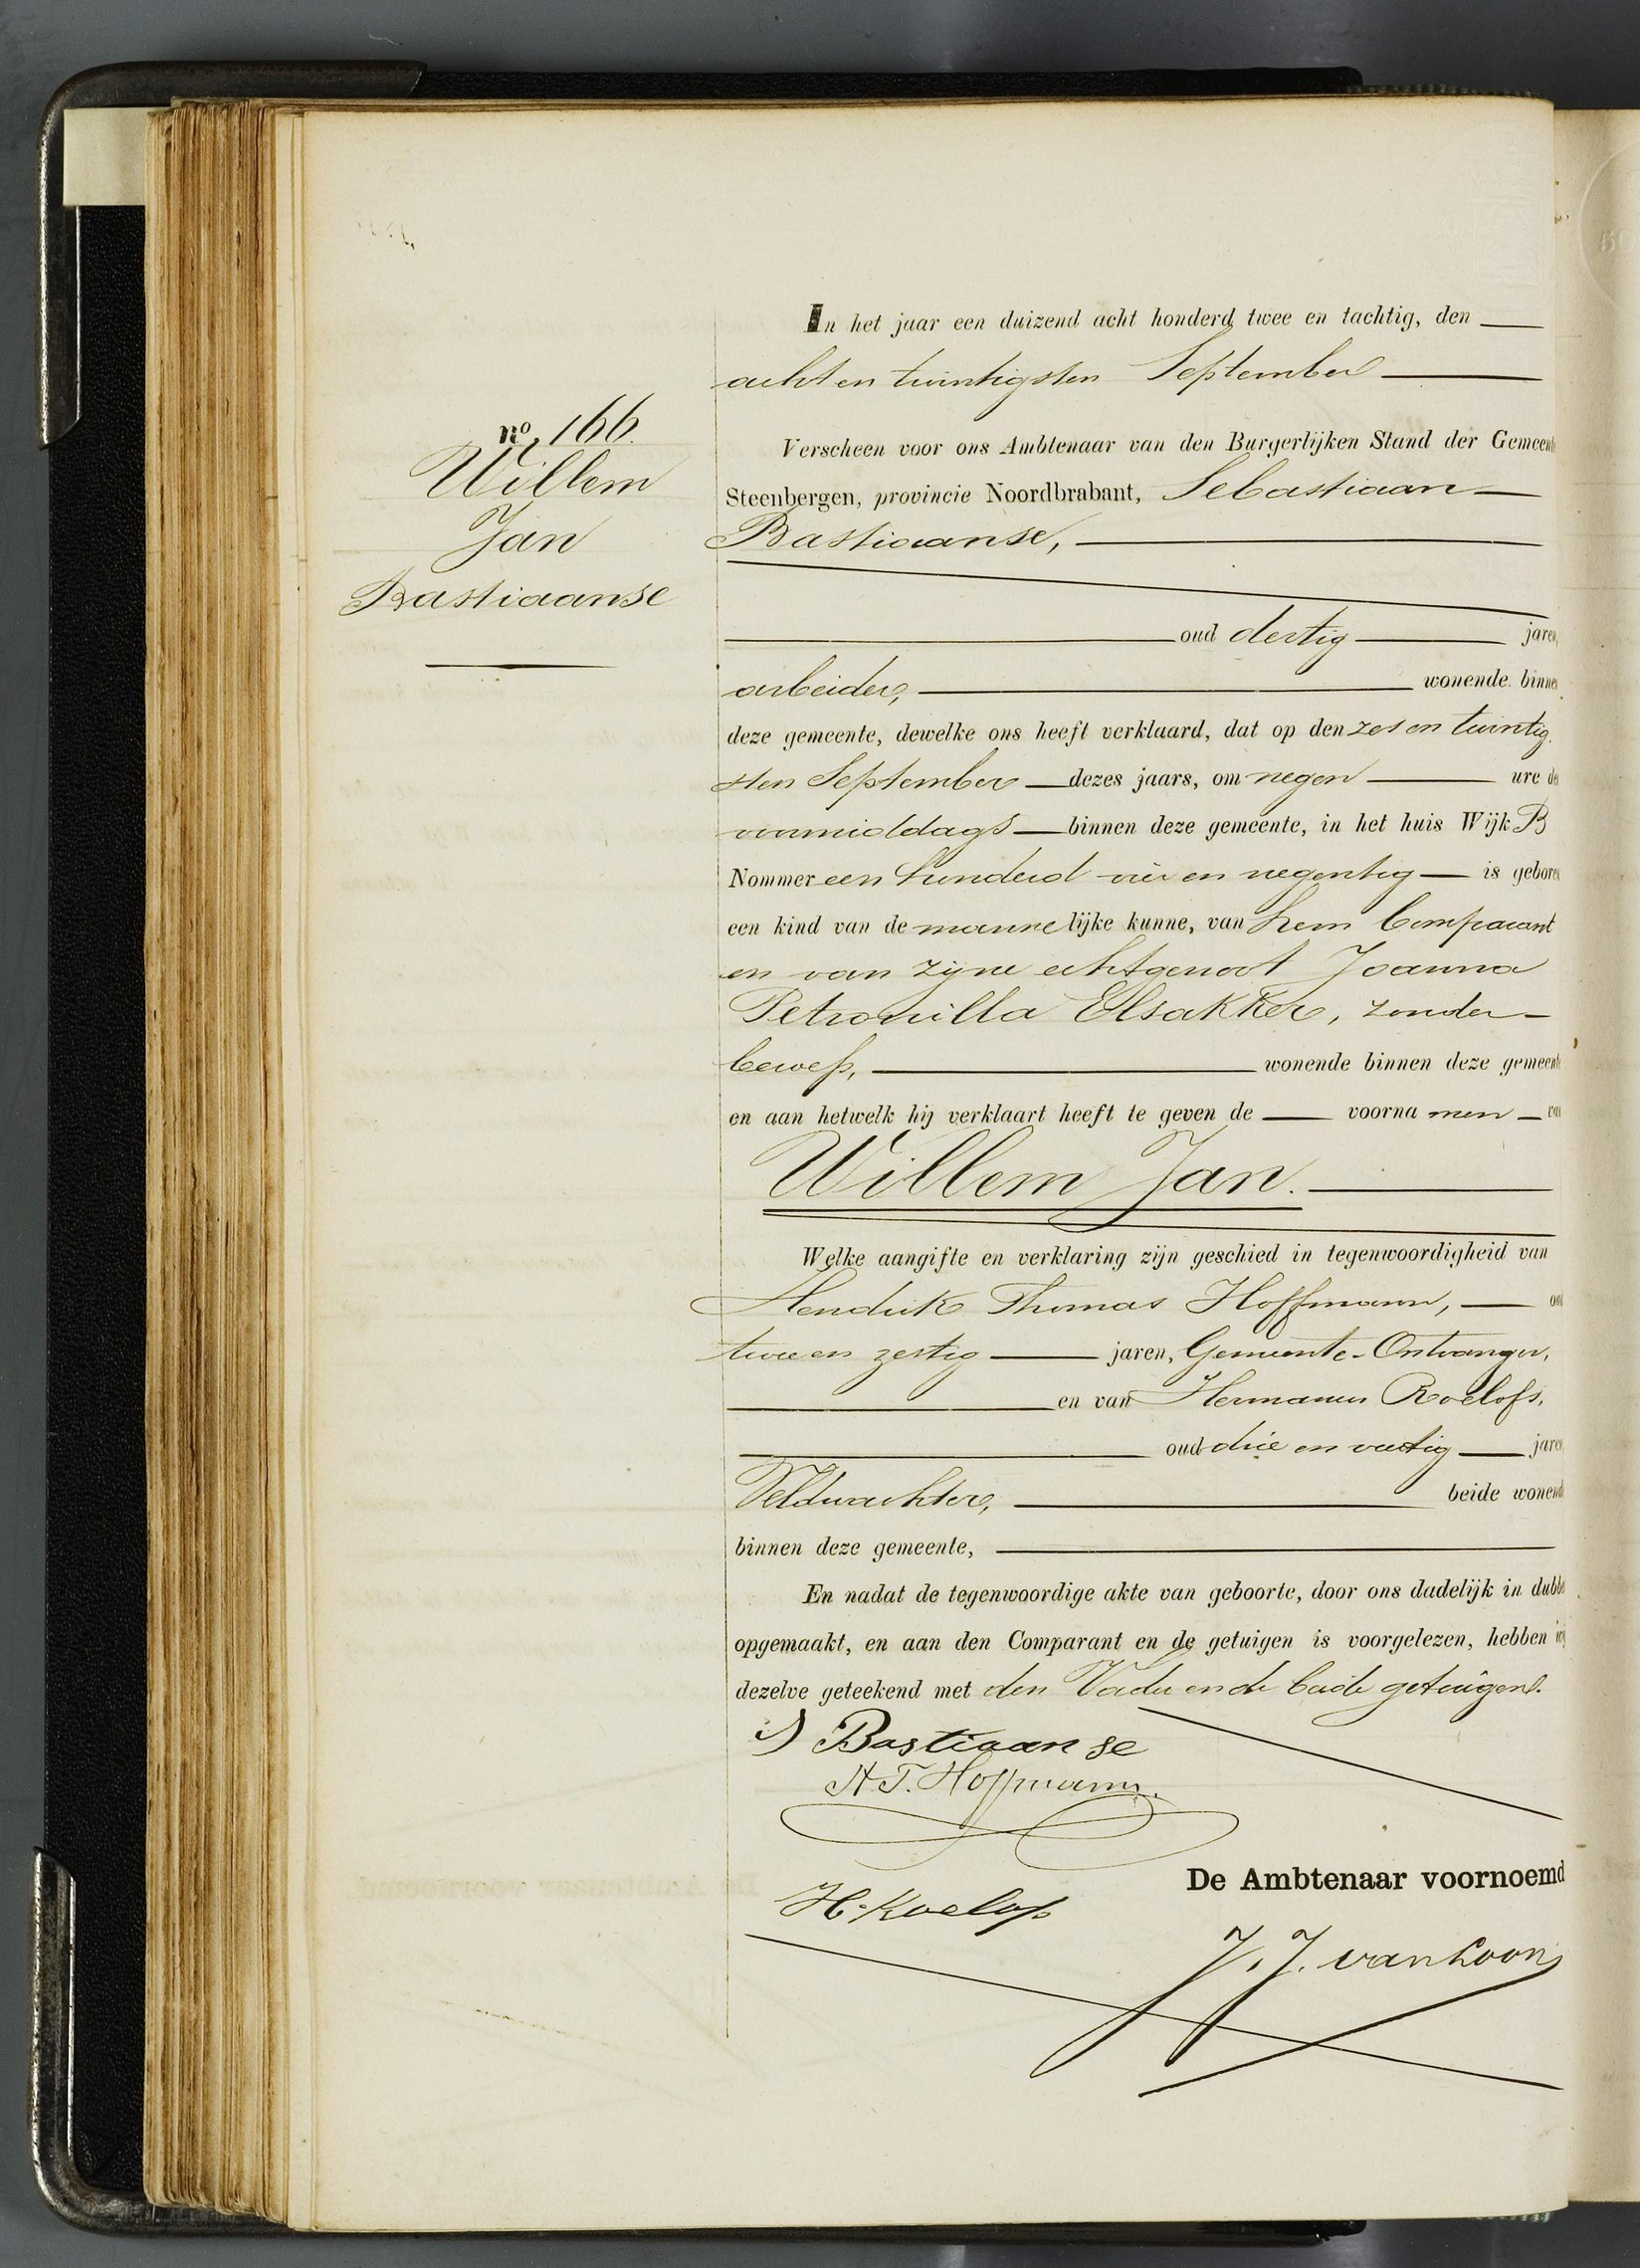 In het jaar een duizend acht honderd twee en tachtig, den
acht en twintigsten September
no. 166.
Willem
Jan
Bastiaanse
Verscheen voor ons Ambtenaar van den Burgerlijken Stand der Gemeente
Steenbergen, provincie Noordbrabant, Sebastiaan
Bastiaanse,
oud dertig jaren,
arbeider, wonende binnen
deze gemeente, dewelke ons heeft verklaard, dat op den zes en twintig
sten September dezes jaars, om negen ure des
voormiddags binnen deze gemeente, in het huis Wijk B
Nommer een hunderd vier en negentig is geboren
een kind van de mannelijke kunne, van hem Comparant
en van zijne echtgenoot Joanna
Petronilla Elsakker, zonder
beroep, wonende binnen deze gemeente
en aan hetwelk hij verklaart heeft te geven de voorna men van
Willem Jan.
Welke aangifte en verklaring zijn geschied in tegenwoordigheid van
Hendrik Thomas Hoffmann, oud
twee en zestig jaren, Gemeente-Ontvanger,
en van Hermanus Roelofs,
oud drie en veertig jaren
Veldwachter, beide wonende
binnen deze gemeente,
En nadat de tegenwoordige akte van geboorte, door ons dadelijk in dubbel
opgemaakt, en aan den Comparant en de getuigen is voorgelezen, hebben wij
dezelve geteekend met den Vader en de beide getuigen.
S Bastiaanse
H.T. Hoffmann.
De Ambtenaar voornoemd
H. Roelofs
J. J. van Loon